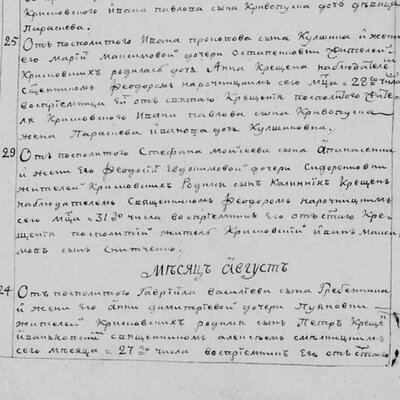 Крисновского ивана павлова сына Кривопуска доч девица
Парасева.
25 Отъ посполитого Ивана прокопова сына Кулшина и жени
его Марій Максимовой дочери Остапенковни жителей
Крисновскихъ родилась доч Анна Крещена наблюдателем
Священникомъ Феодоромъ нарочицкимъ сего мца = 28го числа
воспрiемница Ей отъ святаго Крещения посполитого жите-
ля Крисновского Ивани павлова сына Кривопуска
жена Парасева иванова доч Кулшиновна.
29 Отъ посполитого Стефана Моисеева сына Атанасенка
и жени Его Феодосiй Евдокимовой дочери Сидоренковни
жителей Крисновскихъ Родился сынъ Калинникъ Крещенъ
наблюдателемъ Священникомъ Феодоромъ нарочицкимъ
сего мца = 31го числа воспрiемникъ Его отъ Стаго Кре-
щения посполитий житель Крисновскiй иванъ макси-
мовъ сынъ Снитченко.
Мѣсяцъ Августъ
24 Отъ посполитого Гавріила Василіева сына Гребенника
и жени Его Анни димитріевой дочери
жителей Крисновскихъ родился сынъ Петръ Креще
священникомъ алексѣемъ
сего мѣсяца = 27го числа воспрiемникъ Его отъ стаго